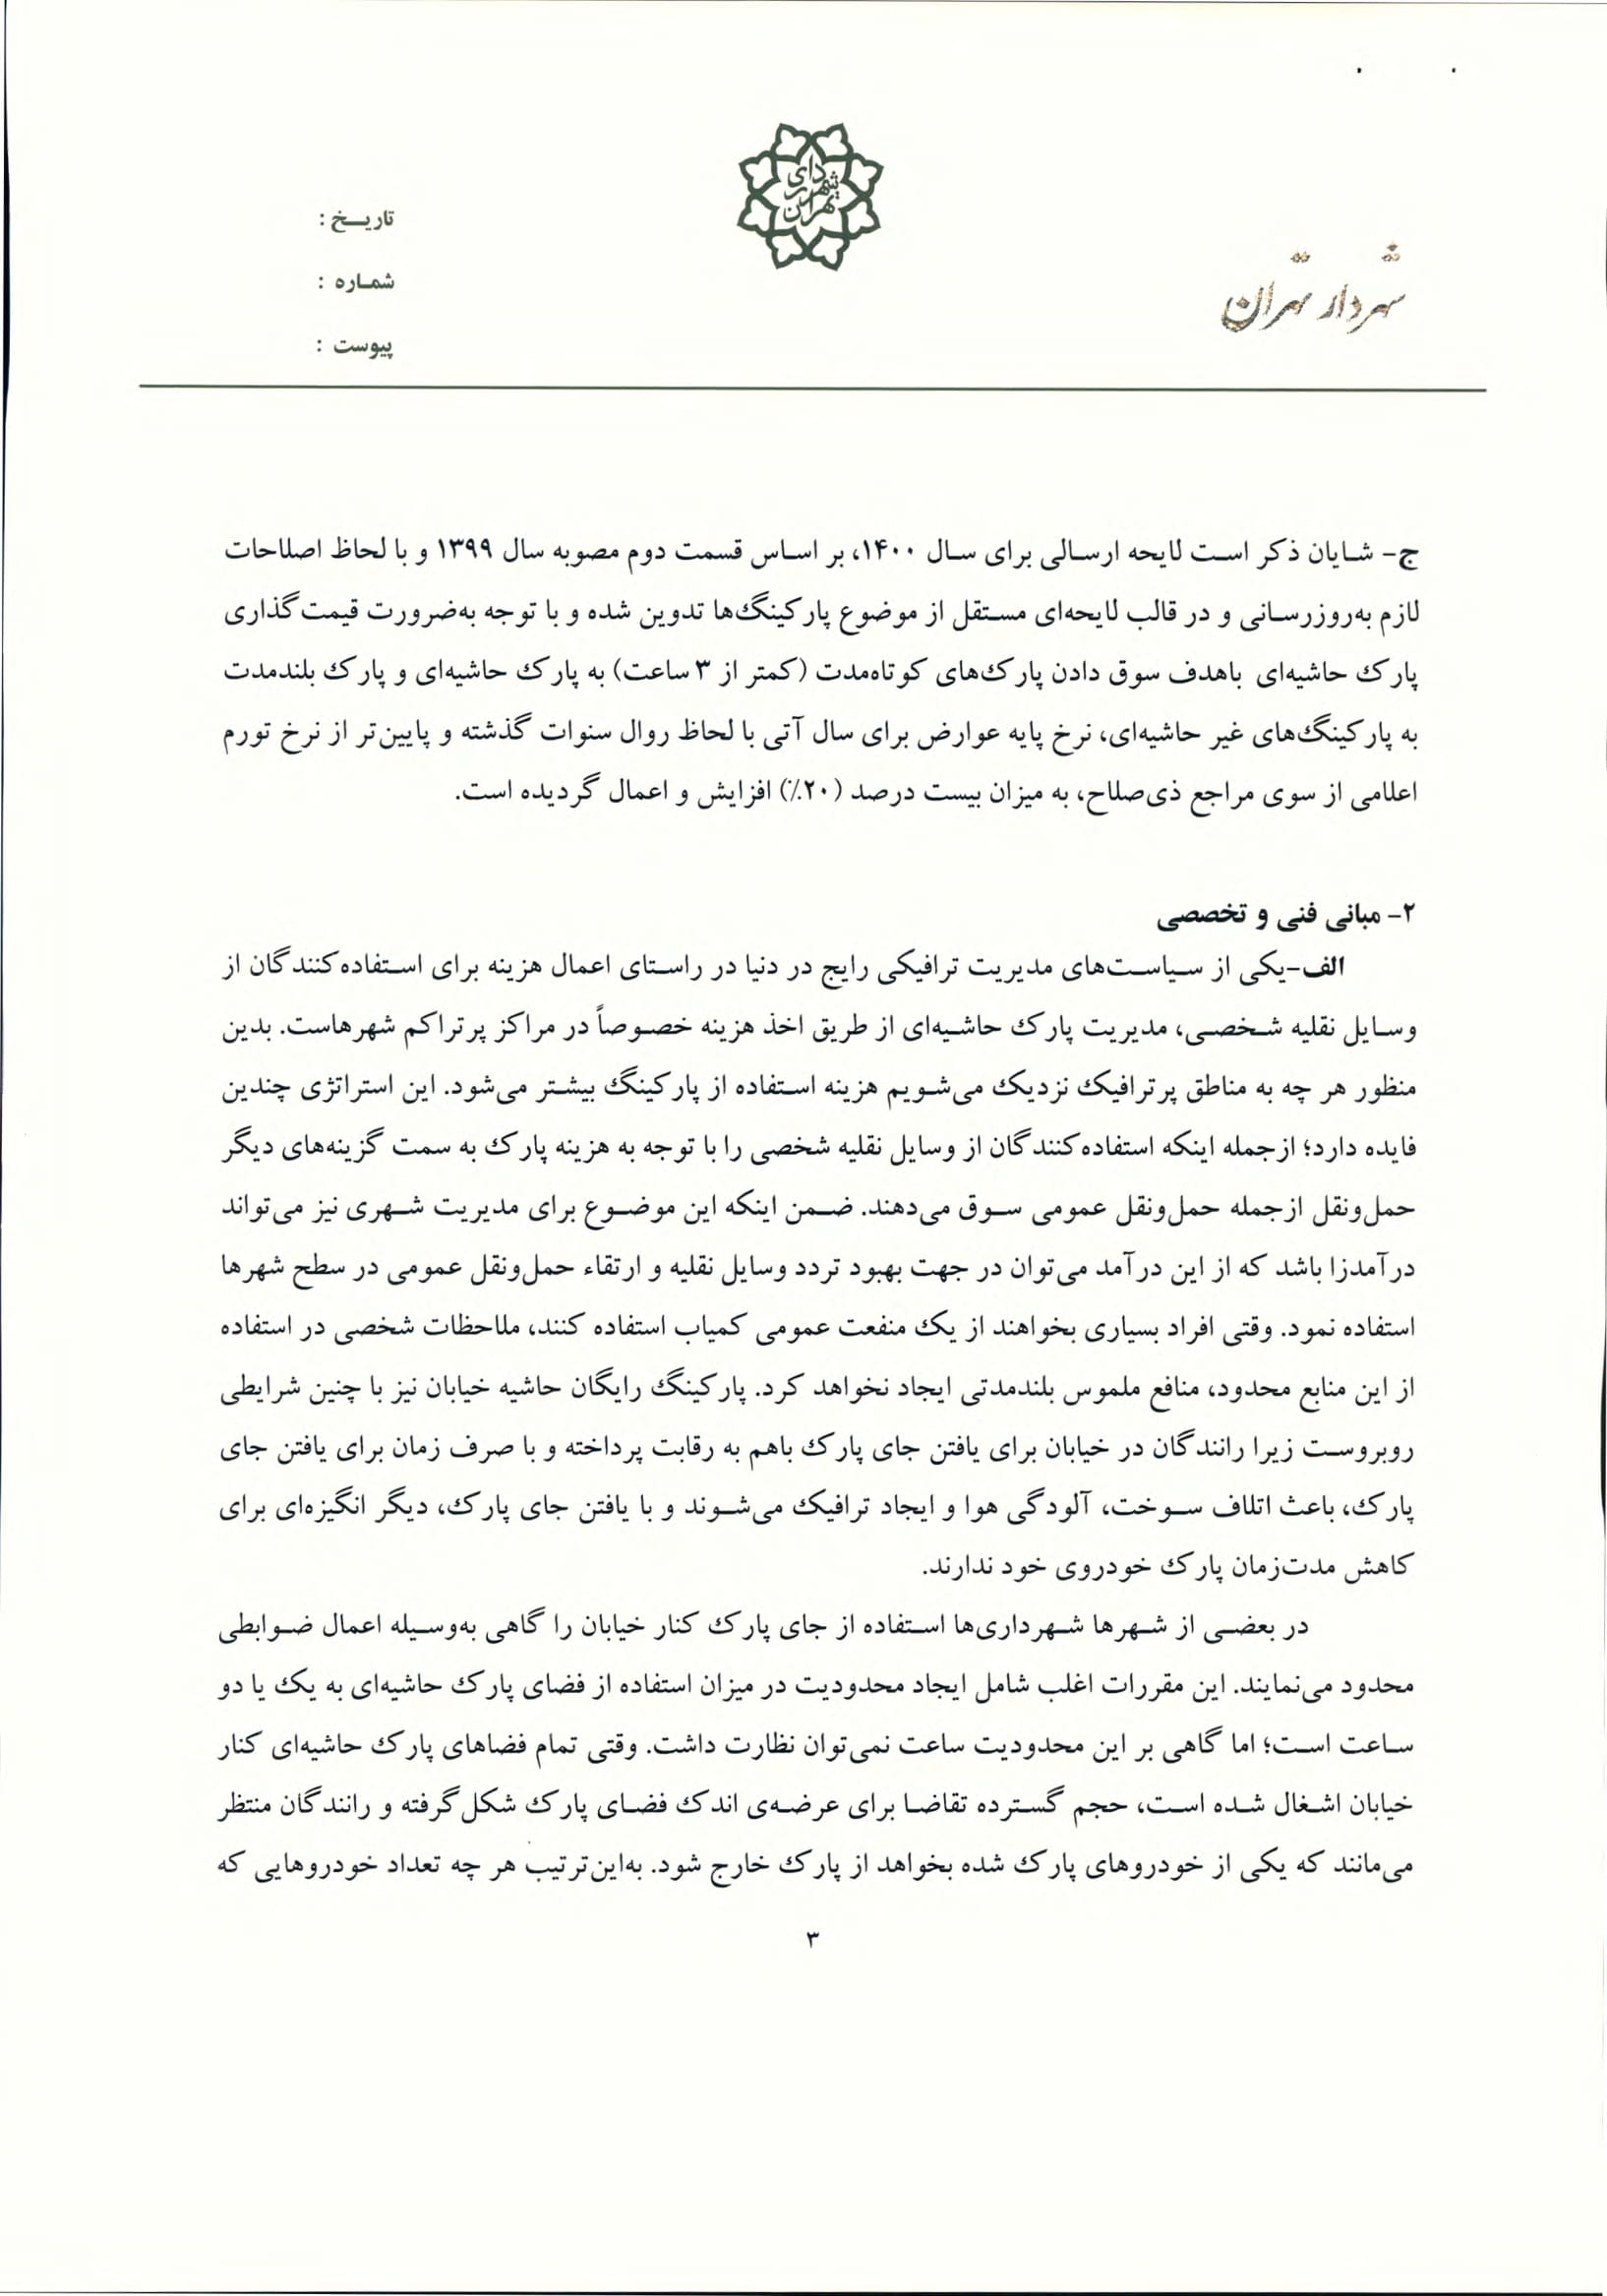 شهرداری تهران
تاریخ :
شماره :
پیوست :
شهردار تهران
ج- شایان ذکر است لایحه ارسالی برای سال ۱۴۰۰، بر اساس قسمت دوم مصوبه سال ۱۳۹۹ و با لحاظ اصلاحات
لازم به‌روزرسانی و در قالب لایحه‌ای مستقل از موضوع پارکینگ‌ها تدوین شده و با توجه به‌ضرورت قیمت‌گذاری
پارک حاشیه‌ای باهدف سوق دادن پارک‌های کوتاه‌مدت (کمتر از ۳ ساعت) به پارک حاشیه‌ای و پارک بلندمدت
به پارکینگ‌های غیر حاشیه‌ای، نرخ پایه عوارض برای سال آتی با لحاظ روال سنوات گذشته و پایین‌تر از نرخ تورم
اعلامی از سوی مراجع ذی‌صلاح، به میزان بیست درصد (۲۰٪) افزایش و اعمال گردیده است.
۲- مبانی فنی و تخصصی
الف-یکی از سیاست‌های مدیریت ترافیکی رایج در دنیا در راستای اعمال هزینه برای استفاده‌کنندگان از
وسایل نقلیه شخصی، مدیریت پارک حاشیه‌ای از طریق اخذ هزینه خصوصاً در مراکز پرتراکم شهرهاست. بدین
منظور هر چه به مناطق پرترافیک نزدیک می‌شویم هزینه استفاده از پارکینگ بیشتر می‌شود. این استراتژی چندین
فایده دارد؛ ازجمله اینکه استفاده‌کنندگان از وسایل نقلیه شخصی را با توجه به هزینه پارک به سمت گزینه‌های دیگر
حمل‌ونقل ازجمله حمل‌ونقل عمومی سوق می‌دهند. ضمن اینکه این موضوع برای مدیریت شهری نیز می‌تواند
درآمدزا باشد که از این درآمد می‌توان در جهت بهبود تردد وسایل نقلیه و ارتقاء حمل‌ونقل عمومی در سطح شهرها
استفاده نمود. وقتی افراد بسیاری بخواهند از یک منفعت عمومی کمیاب استفاده کنند، ملاحظات شخصی در استفاده
از این منابع محدود، منافع ملموس بلندمدتی ایجاد نخواهد کرد. پارکینگ رایگان حاشیه خیابان نیز با چنین شرایطی
روبروست زیرا رانندگان در خیابان برای یافتن جای پارک باهم به رقابت پرداخته و با صرف زمان برای یافتن جای
پارک، باعث اتلاف سوخت، آلودگی هوا و ایجاد ترافیک می‌شوند و با یافتن جای پارک، دیگر انگیزه‌ای برای
کاهش مدت‌زمان پارک خودروی خود ندارند.
در بعضی از شهرها شهرداری‌ها استفاده از جای پارک کنار خیابان را گاهی به‌وسیله اعمال ضوابطی
محدود می‌نمایند. این مقررات اغلب شامل ایجاد محدودیت در میزان استفاده از فضای پارک حاشیه‌ای به یک یا دو
ساعت است؛ اما گاهی بر این محدودیت ساعت نمی‌توان نظارت داشت. وقتی تمام فضاهای پارک حاشیه‌ای کنار
خیابان اشغال شده است، حجم گسترده تقاضا برای عرضه‌ی اندک فضای پارک شکل‌گرفته و رانندگان منتظر
می‌مانند که یکی از خودروهای پارک شده بخواهد از پارک خارج شود. به‌این‌ترتیب هر چه تعداد خودروهایی که
۳